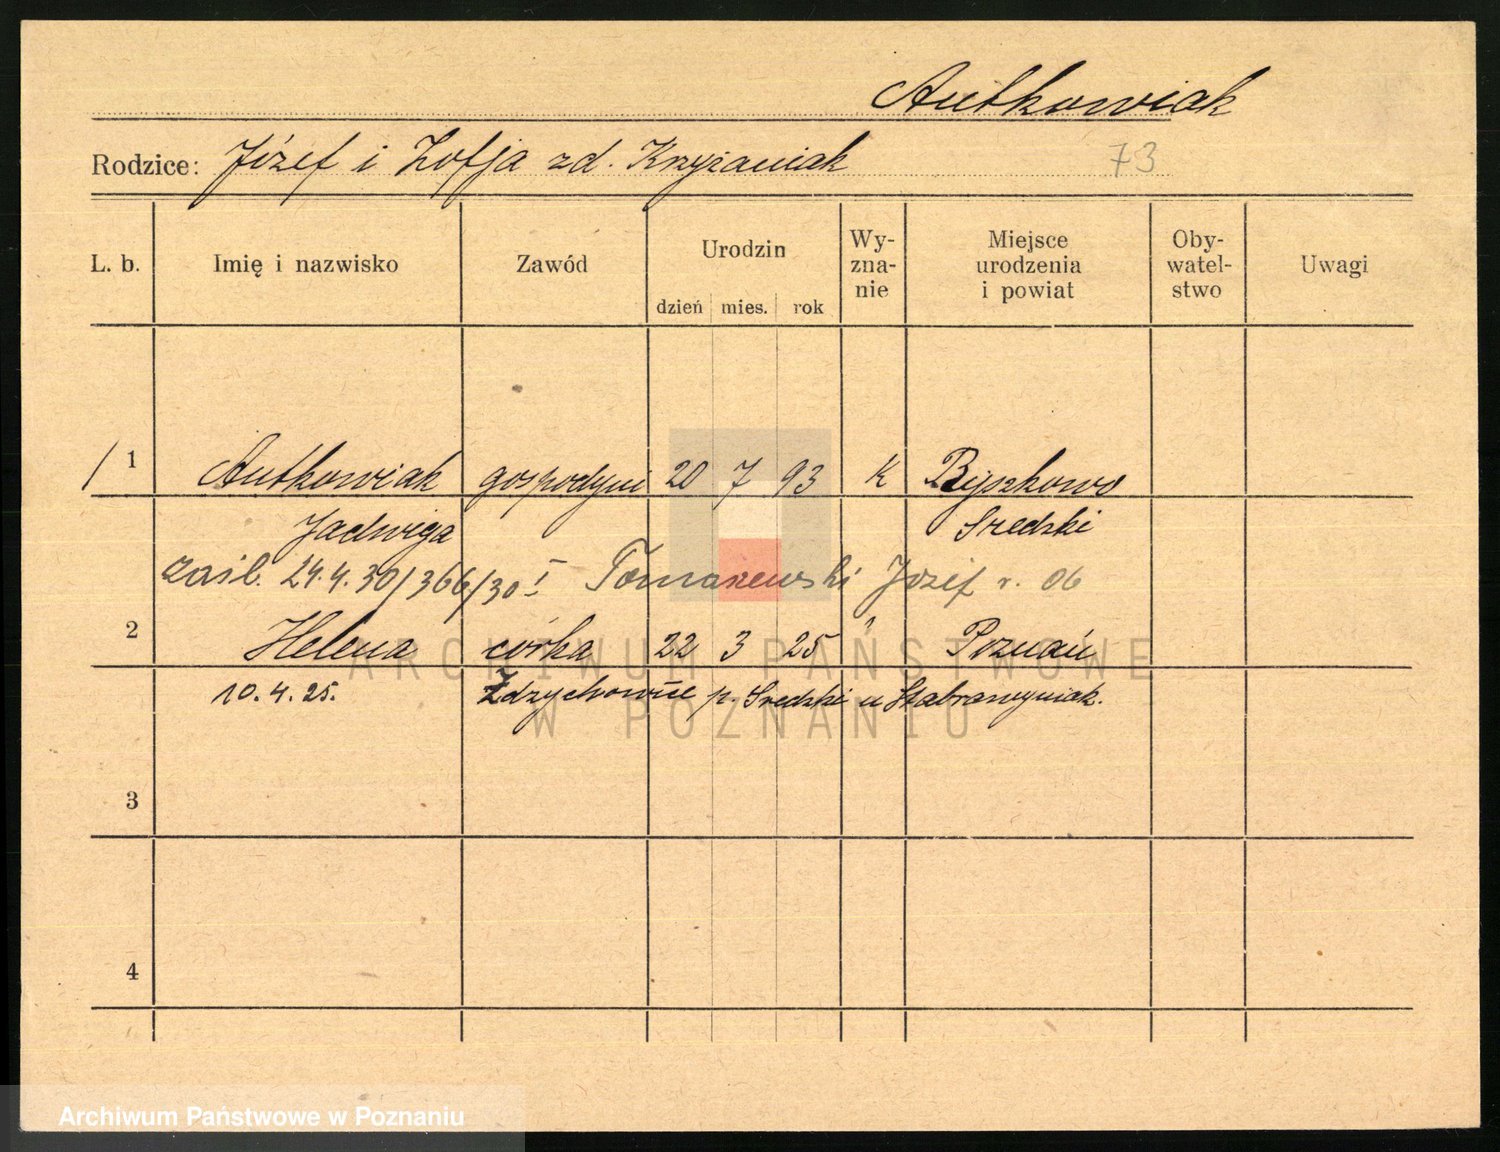 Antkowiak
Rodzice: Józef i Zofja zd. Krzyżaniak 73
L. b. Imię i nazwisko Zawód Urodzin dzień mies. rok Wy-zna-nie Miejsce urodzenia i powiat Oby-watel-stwo Uwagi
1 Antkowiak gospodyni 20 7 93 K Byszkowo
Jadwiga Sredzki
zaśl. 24.4.30/366/30 I Tomaszewski Józef r. 06
2 Helena córka 22 3 25 " Poznań
10.4.25. Zdzychowice p. Sredzki u
3
4
ARCHIWUM PAŃSTWOWE
W POZNANIU
Archiwum Państwowe w Poznaniu